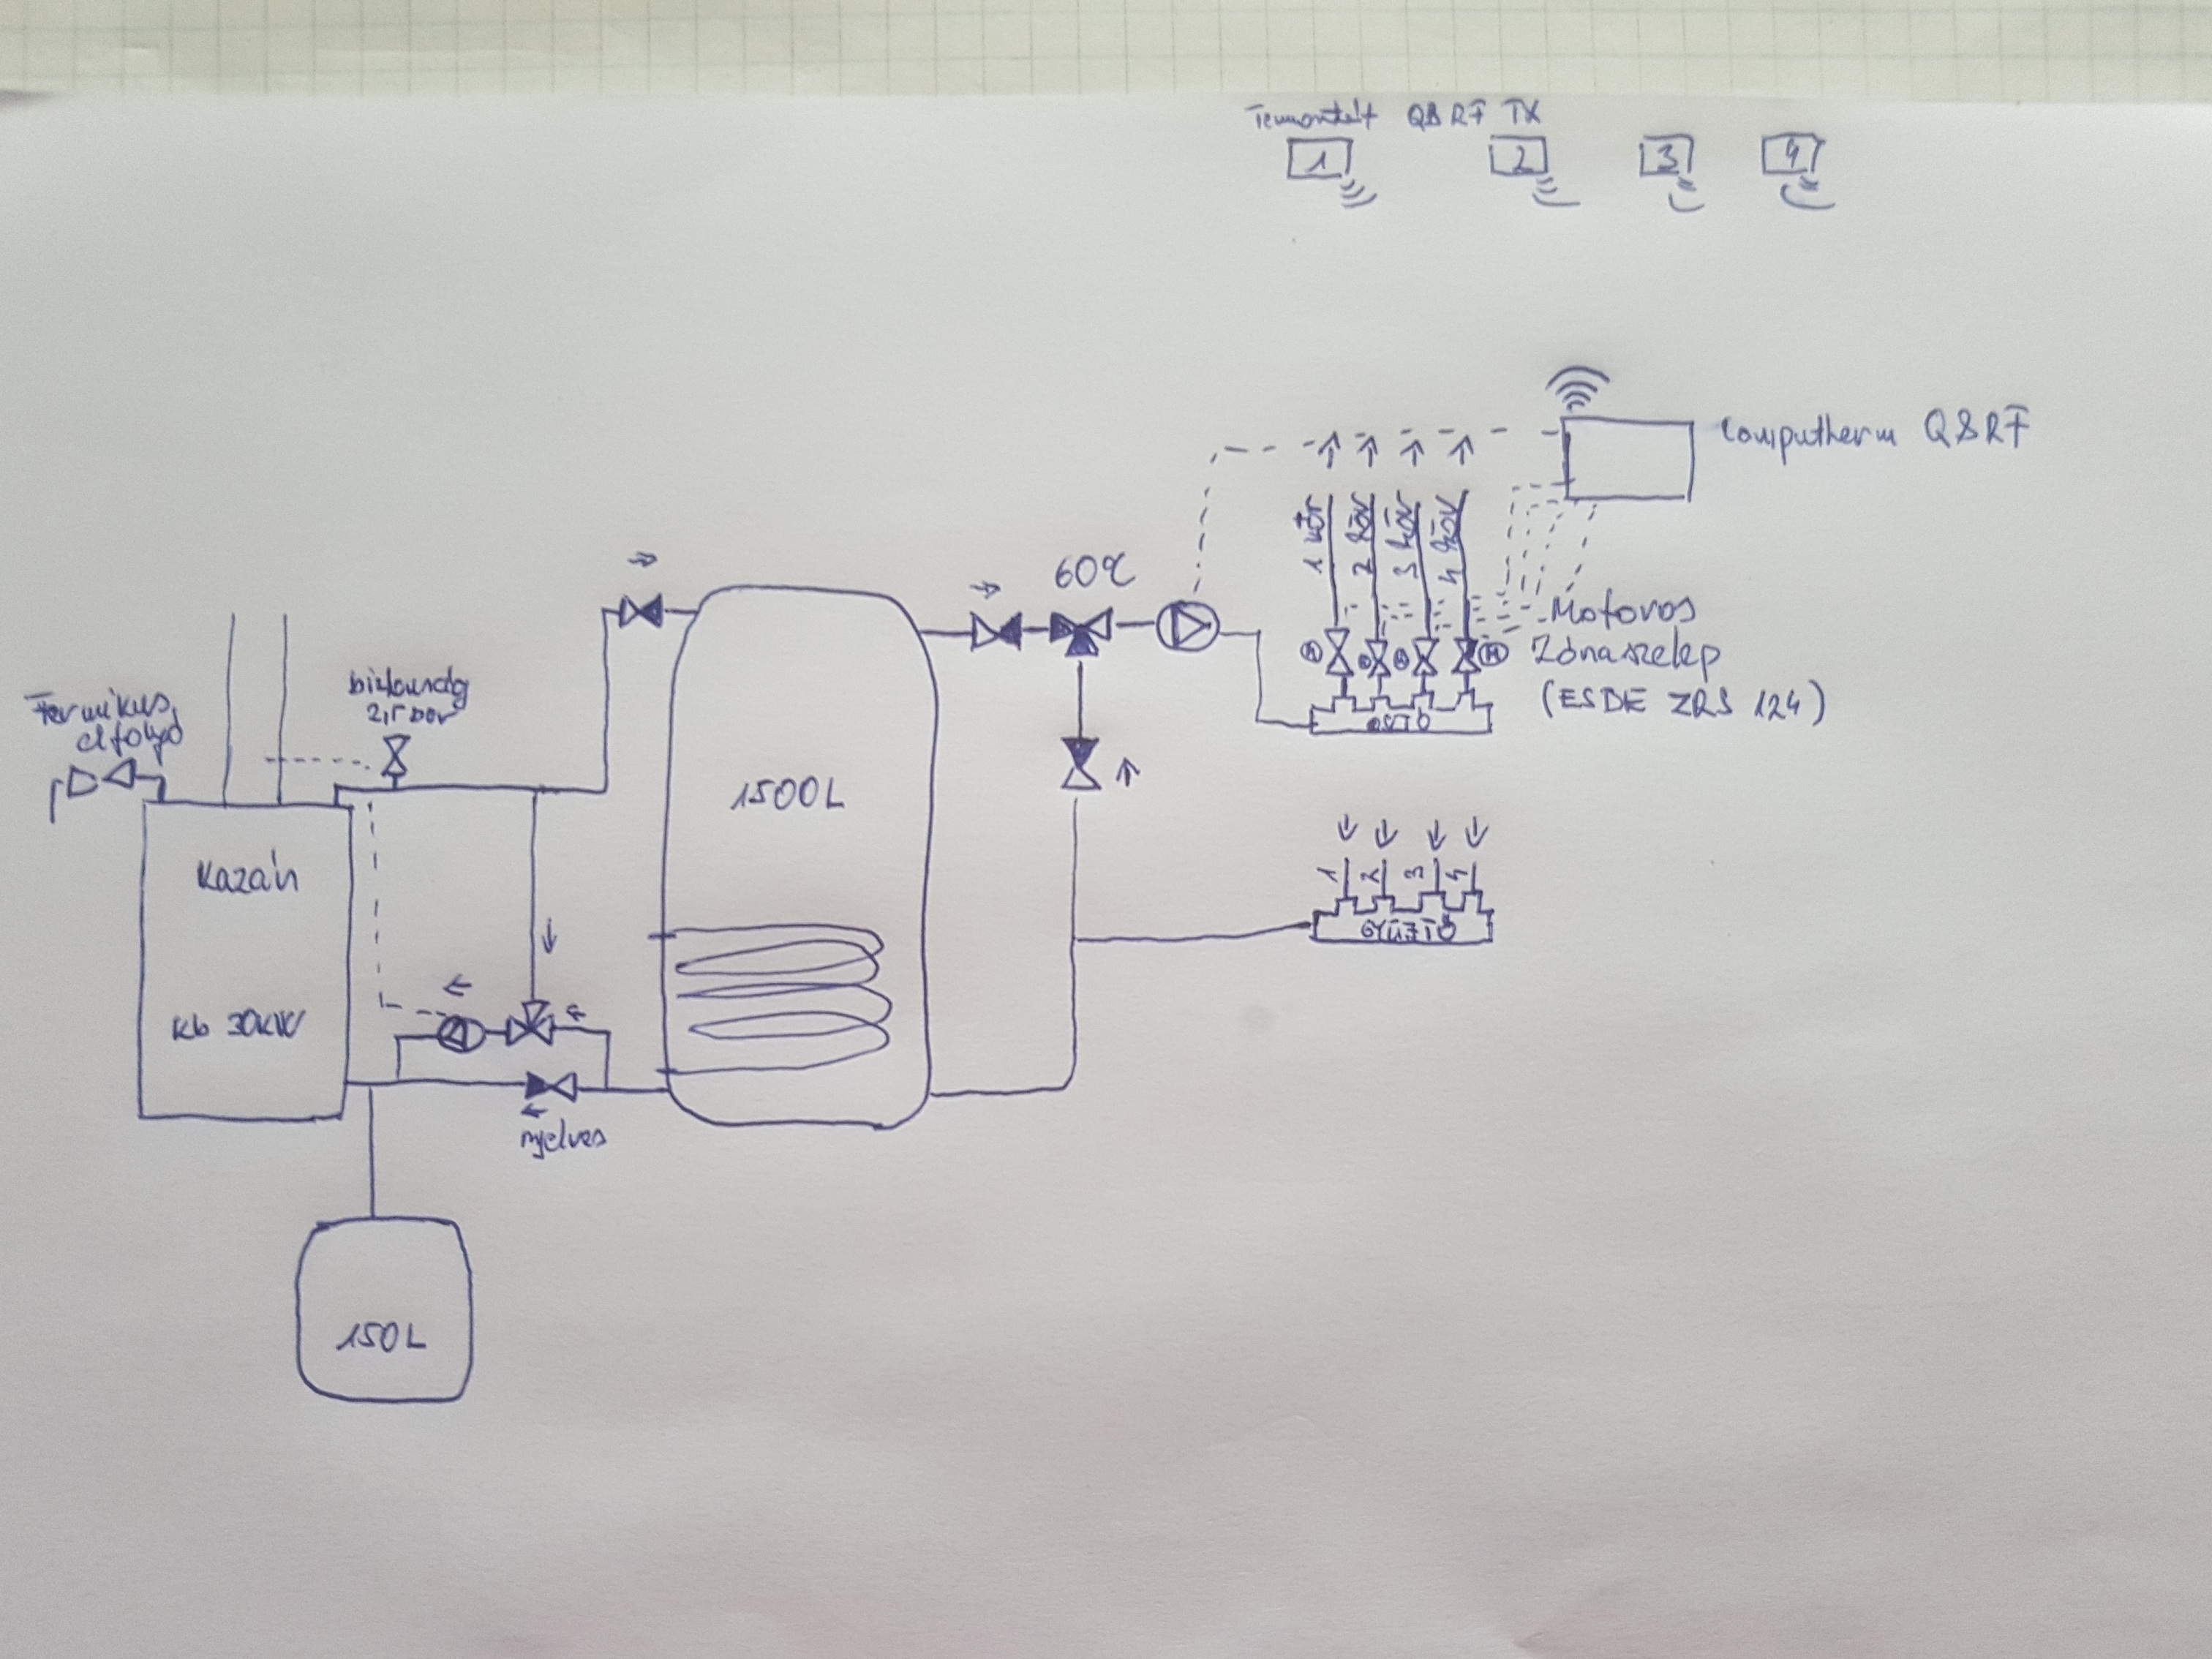 Termosztát Q8 RF TX
1
2
3
4
Computherm Q8RF
1 kör
2 kör
3 kör
4 kör
60°C
M
M
M
M
Motoros
Zónaszelep
(ESBE ZRS 124)
OSTÓ
Termikus
elfolyó
biztonság
2,5 bar
1500L
Kazán
kb 30kW
1
2
3
4
GYŰJTŐ
nyelves
150L